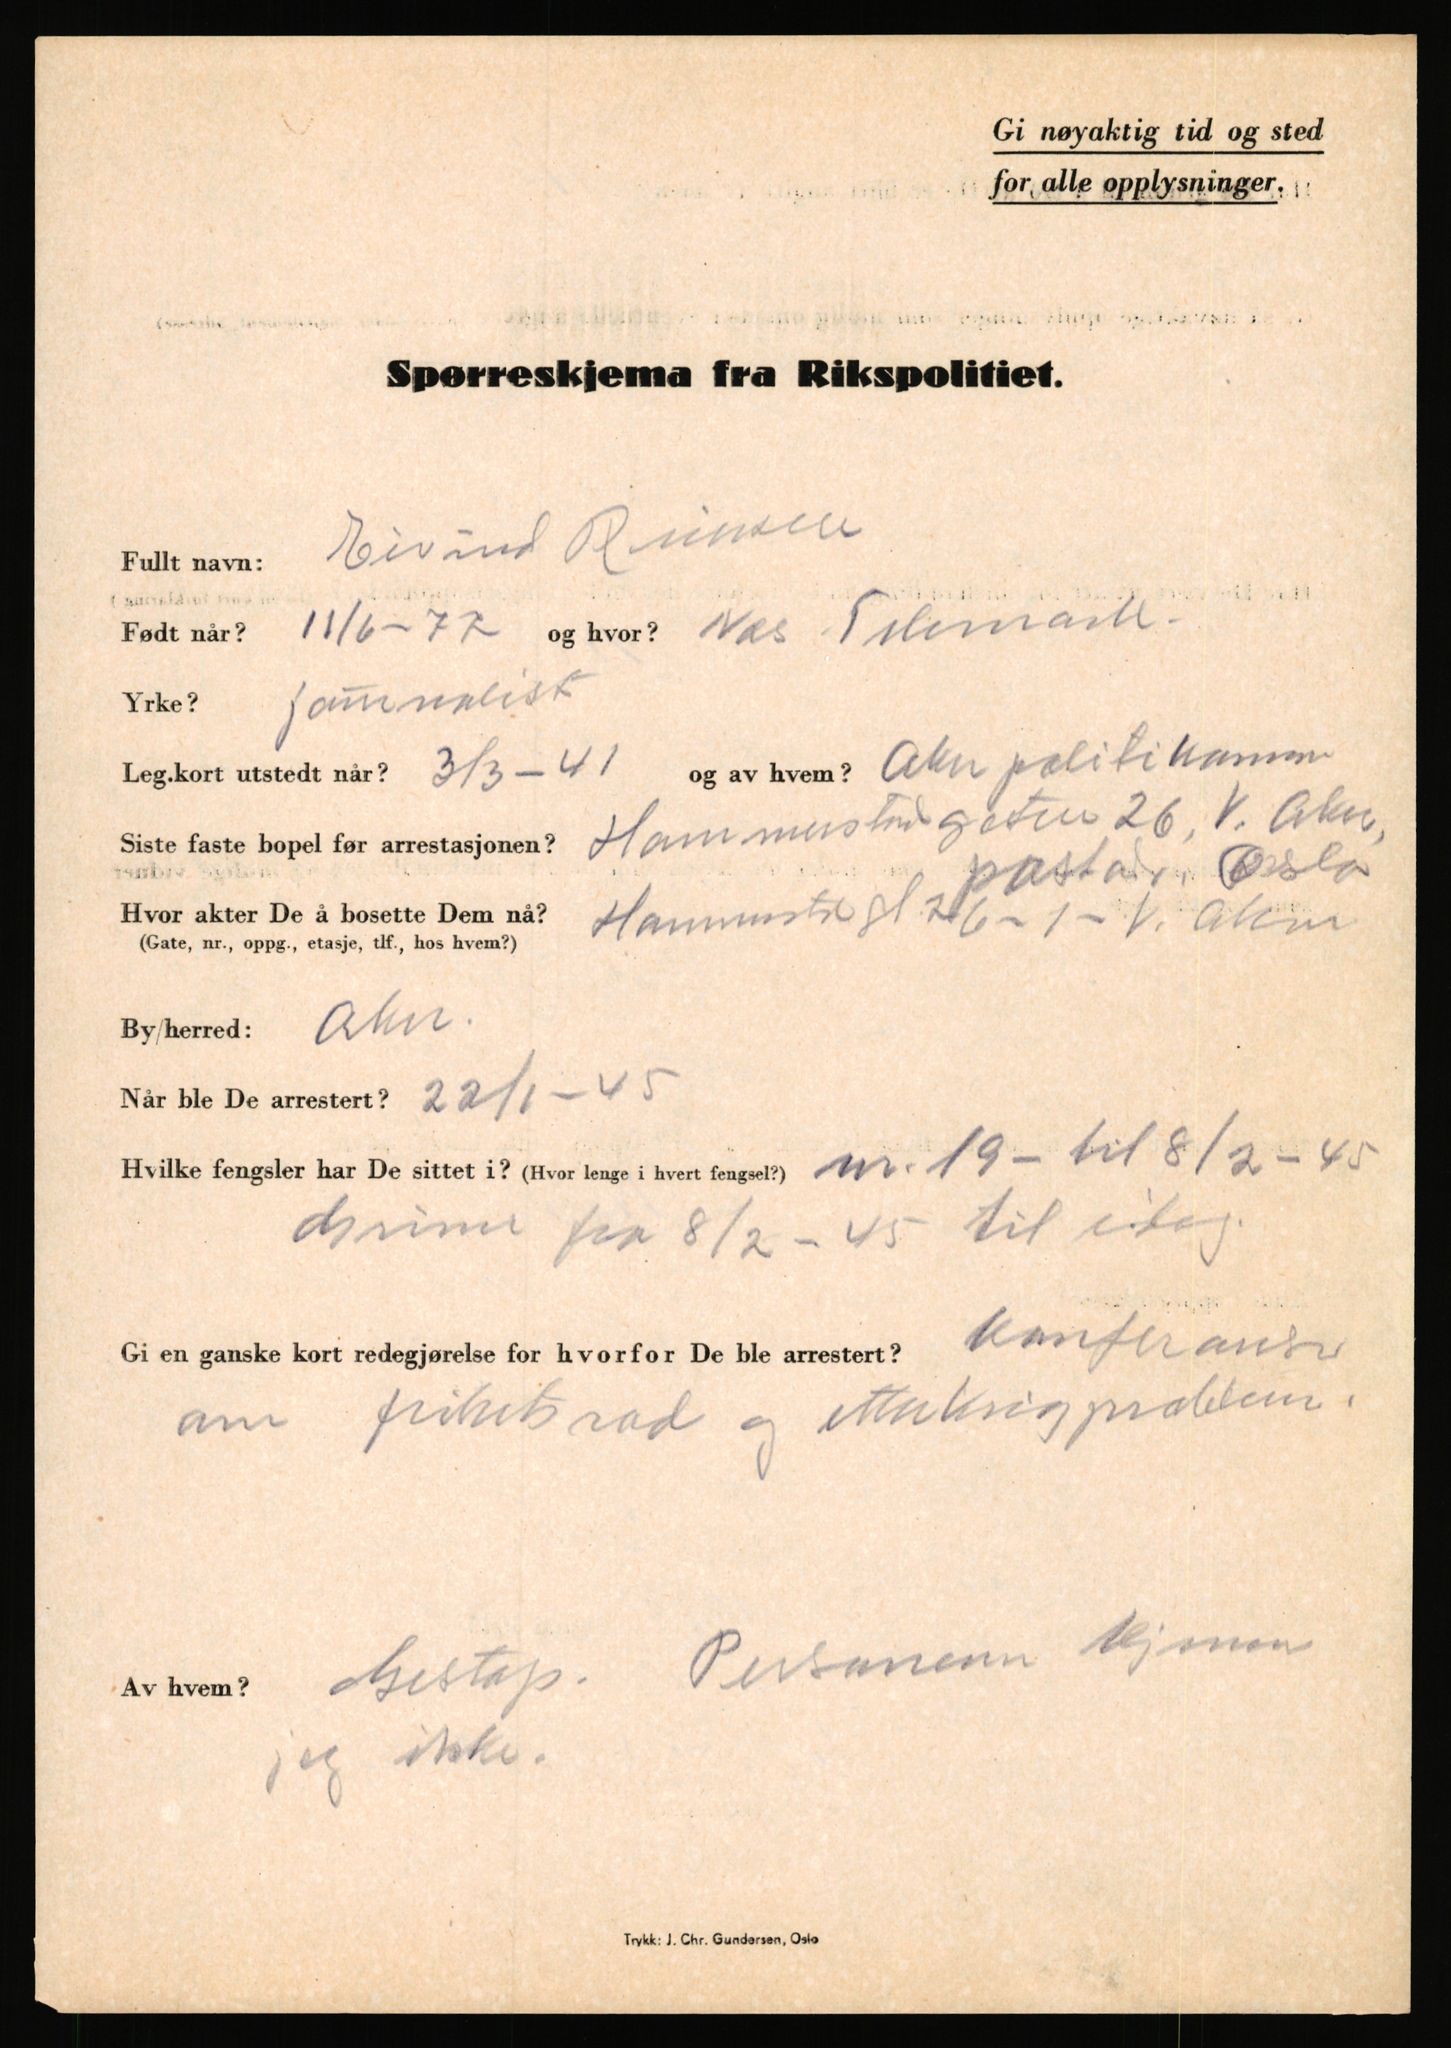 Gi nøyaktig tid og sted
for alle opplysninger.
Spørreskjema fra Rikspolitiet.
Fullt navn: Eivind Reiersen
Født når? 11/6-77 og hvor? Nes Telemark.
Yrke? journalist
Leg.kort utstedt når? 3/3-41 og av hvem? Aker politikammer
Siste faste bopel før arrestasjonen? Hammerstadgaten 26, V. Aker,
postadr. Oslo
Hvor akter De å bosette Dem nå? Hammerst gt 26-1-V. Aker
(Gate, nr., oppg., etasje, tlf., hos hvem?)
By/herred: Aker.
Når ble De arrestert? 22/1-45
Hvilke fengsler har De sittet i? (Hvor lenge i hvert fengsel?) nr. 19 - til 8/2-45
Grini fra 8/2-45 til idag.
Gi en ganske kort redegjørelse for hvorfor De ble arrestert? Konferanser
om frihetsråd og etterkrigsproblem.
Av hvem? Gestapo. Personene kjenner
jeg ikke.
Trykk: J. Chr. Gundersen, Oslo